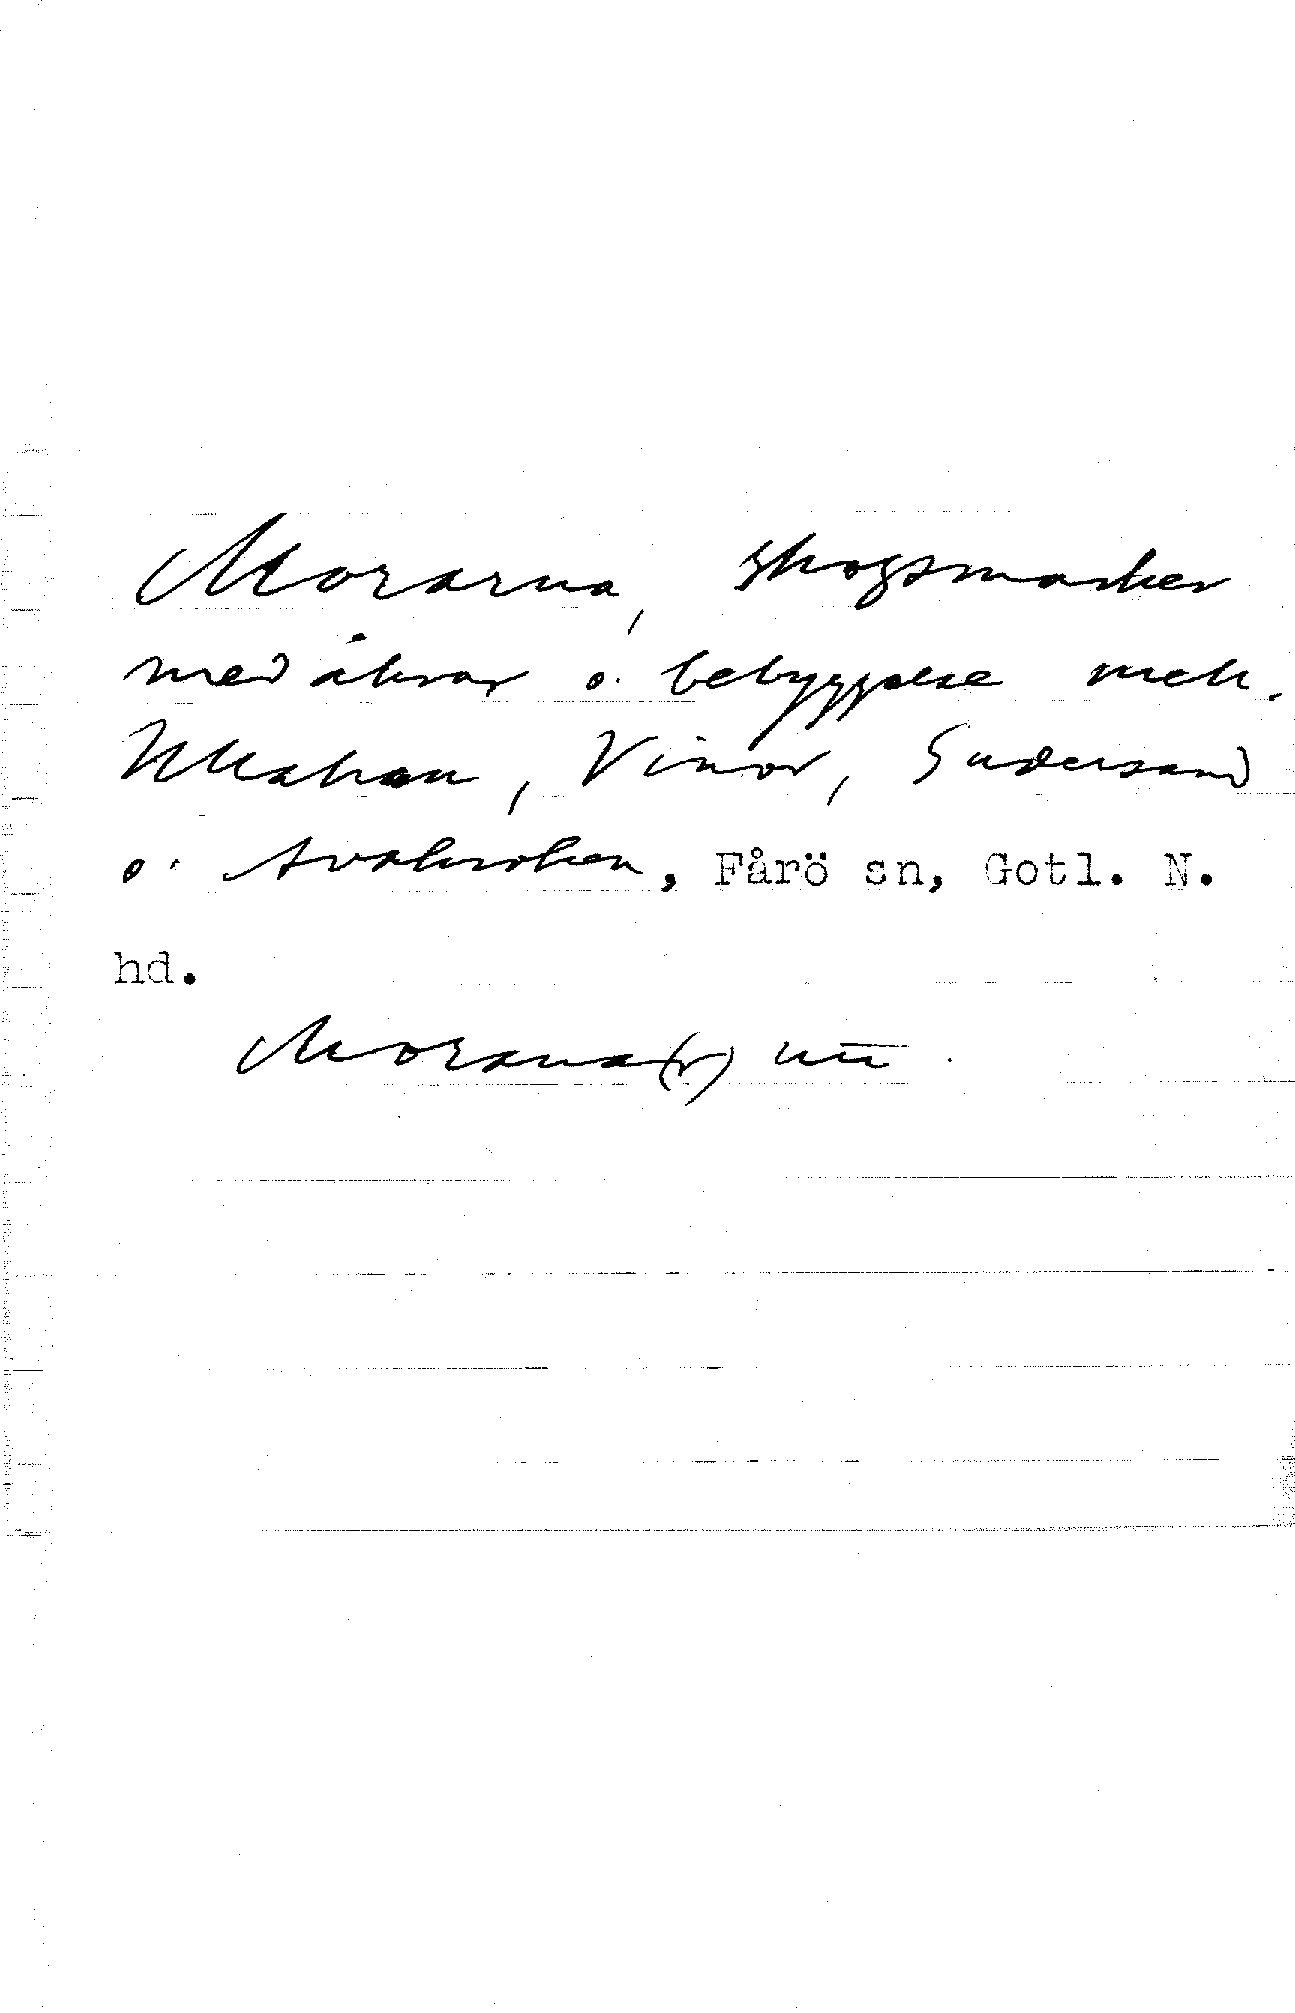 Morarna, skogsmarker
med åkrar o. bebyggelse mell.
Ullahau, Vinor, Sudersand
o. Avakroken, Fårö sn, Gotl. N.
hd.
Morana(r)